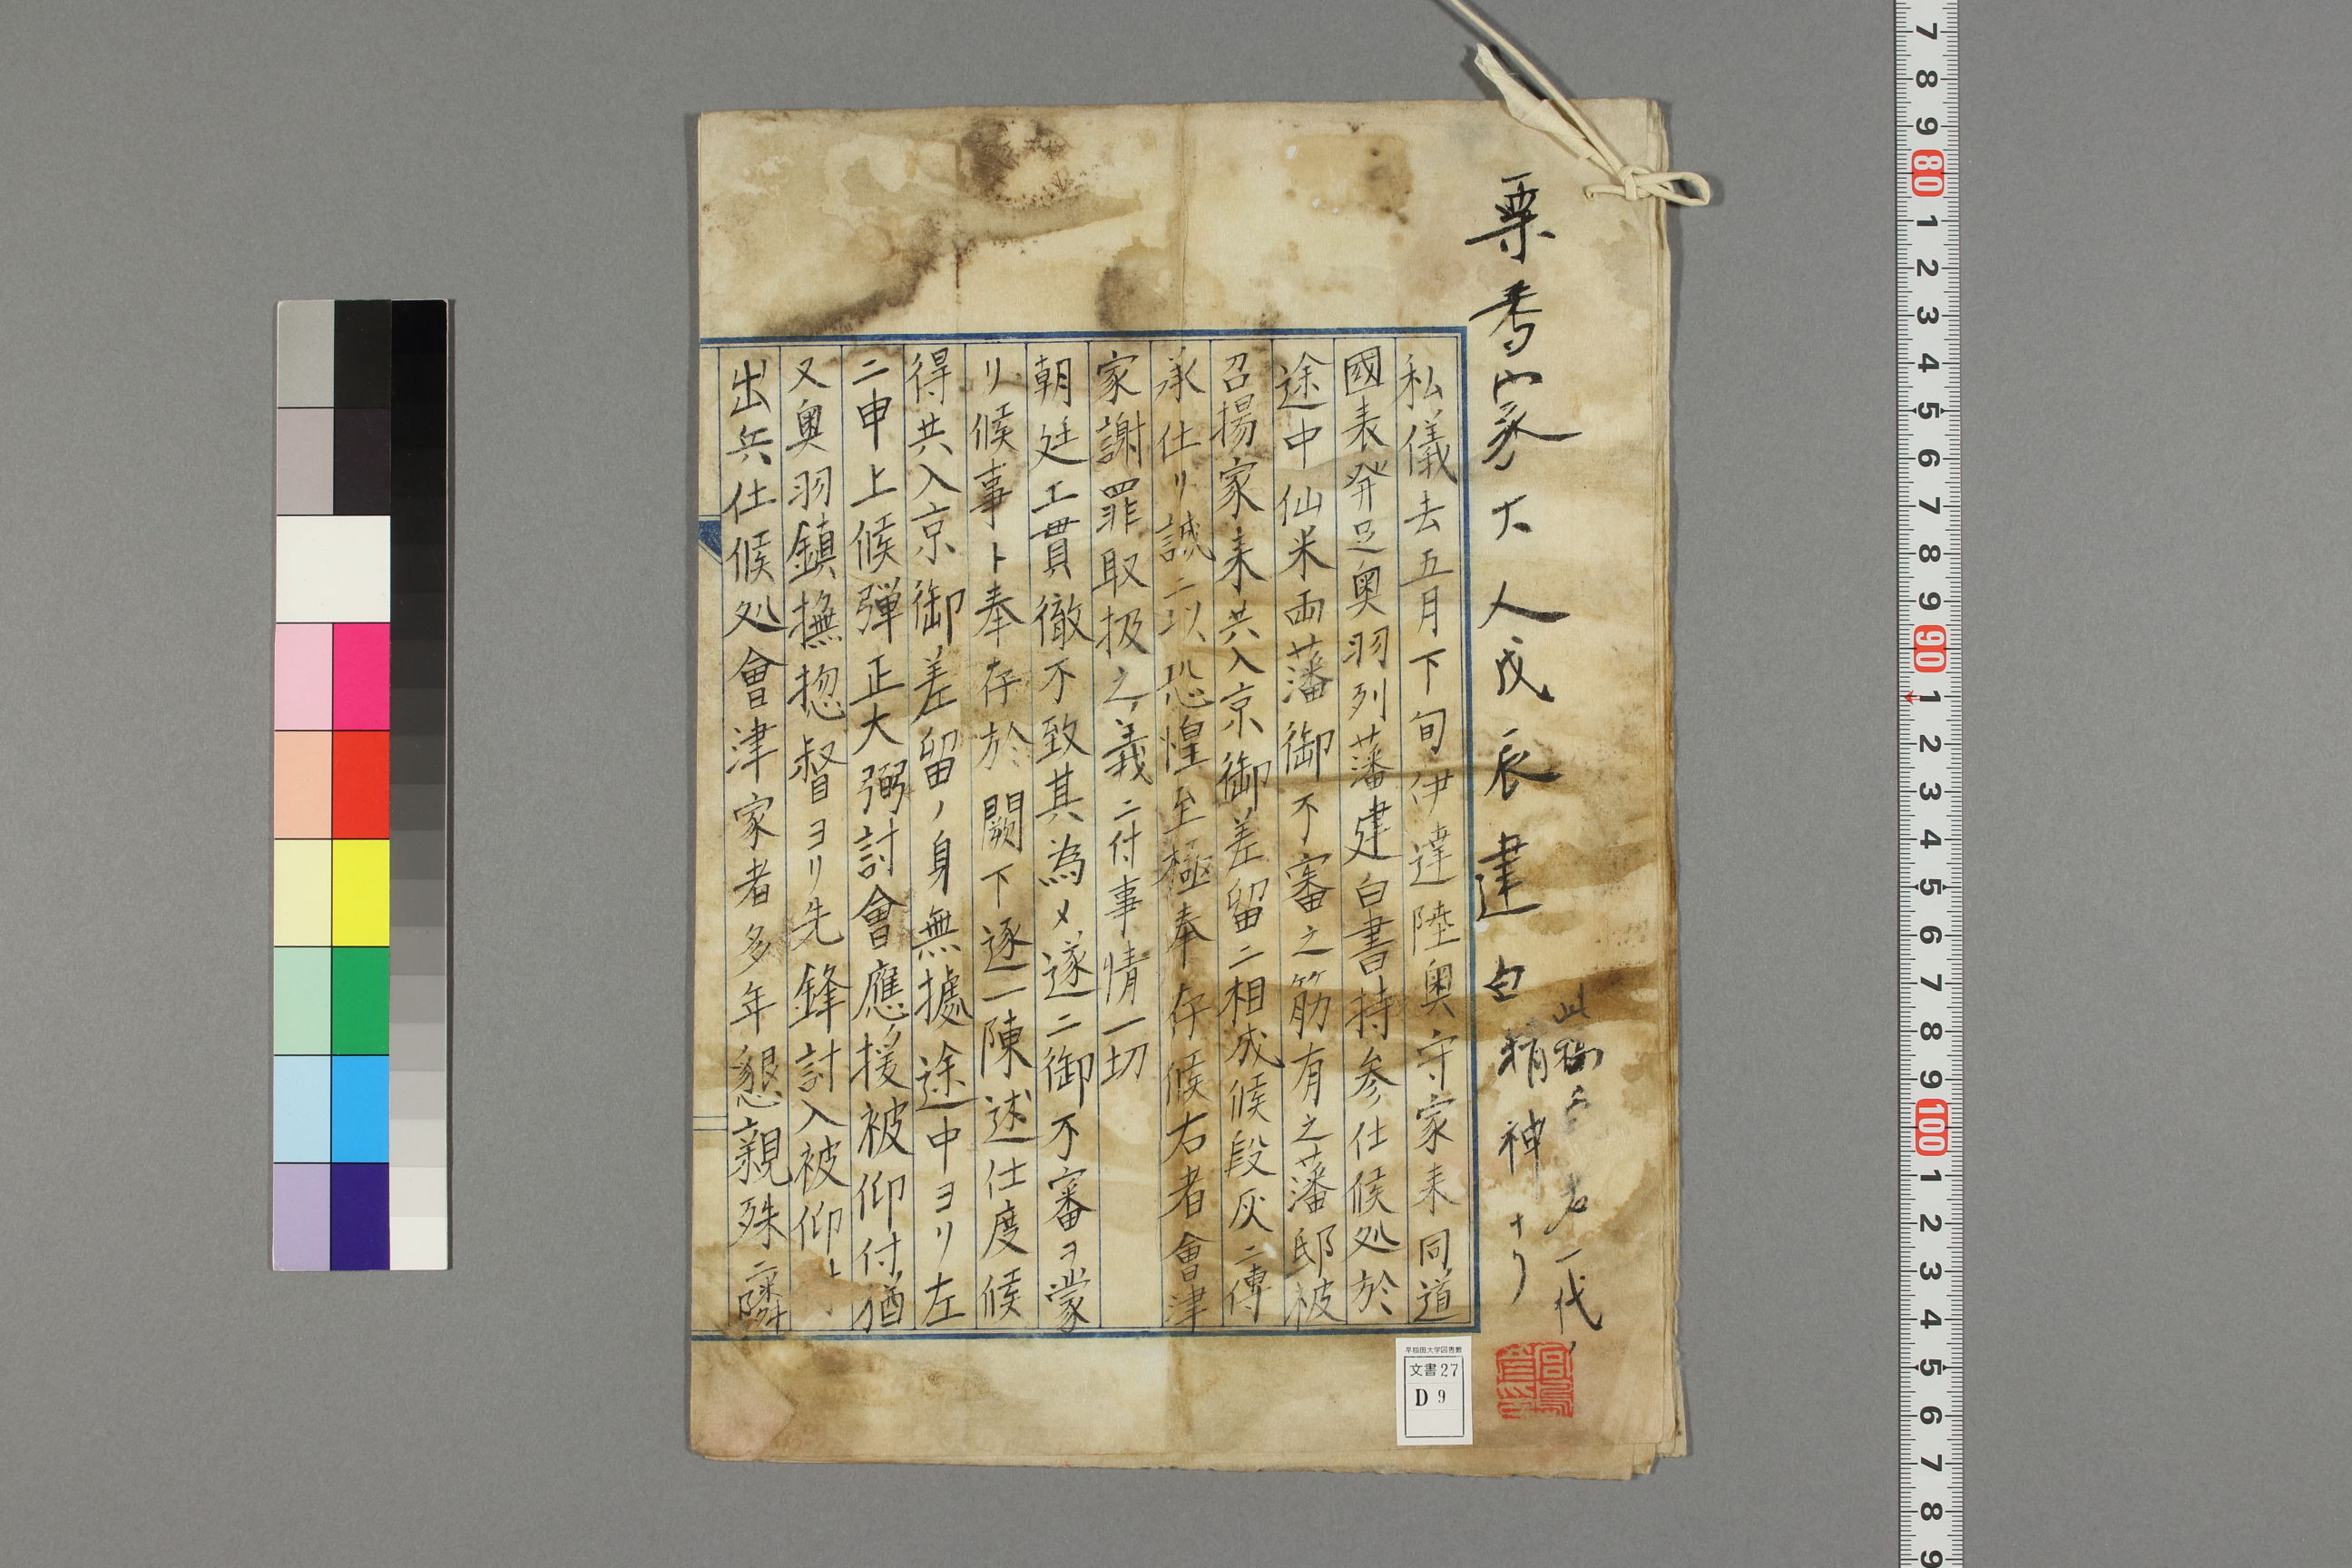 栗香家大人戊辰建白
此稿
君一代ノ
精神ナリ
私儀去五月下旬伊達陸奥守家来同道
國表発足奥羽列藩建白書持参仕候処於
途中仙米両藩御不審之筋有之藩邸被
召揚家来共入京御差留ニ相成候段仄ニ傳
承仕リ誠ニ以恐惶至極奉存候右者會津
家謝罪取扱之義ニ付事情一切
朝廷エ貫徹不致其為メ遂ニ御不審ヲ蒙
リ候事ト奉存於闕下逐一陳述仕度候
得共入京御差留ノ身無據途中ヨリ左
ニ申上候弾正大弼討會應援被仰付猶
又奥羽鎮撫惣督ヨリ先鋒討入被仰
出兵仕候処會津家者多年懇親殊ニ隣
早稲田大学図書館
文書27
D 9
7
8
9
80
1
2
3
4
5
6
7
8
9
90
1
2
3
4
5
6
7
8
9
100
1
2
3
4
5
6
7
8
9